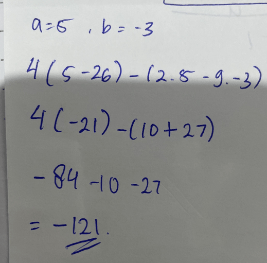 a=5 , b=-3
4(5-26)-(2.5-9.-3)
4(-21)-(10+27)
-84-10-27
=-121.